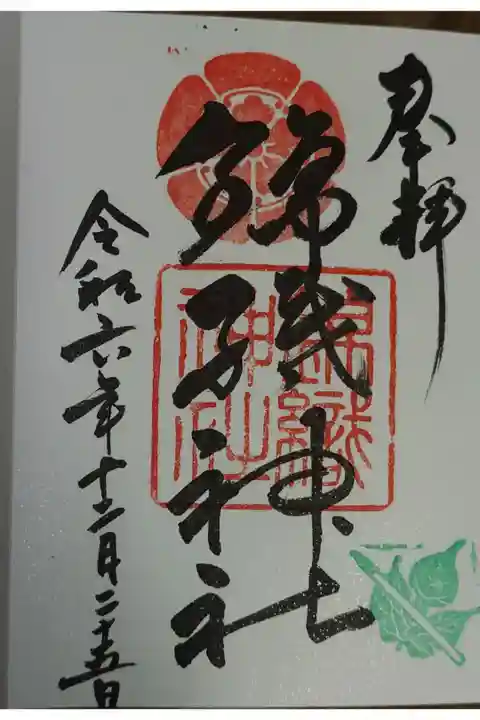 奉拝
錦織神社
錦織
神社
令和六年十二月二十五日